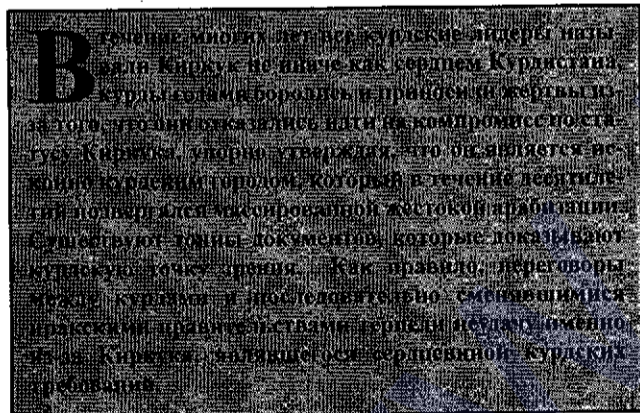 В течение многих лет все курдские лидеры назы-
вали Киркук не иначе как сердцем Курдистана.
Курды годами боролись и приносили жертвы из-
за того, что они отказались идти на компромисс по ста-
тусу Киркука, упорно утверждая, что он является ис-
конно курдским городом, который в течение десятиле-
тий подвергался массированной жестокой арабизации.
Существуют тонны документов, которые доказывают
курдскую точку зрения. Как правило, переговоры
между курдами и последовательно сменявшимися
иракскими правительствами терпели неудачу именно
из-за Киркука, являвшегося сердцевиной курдских
требований.